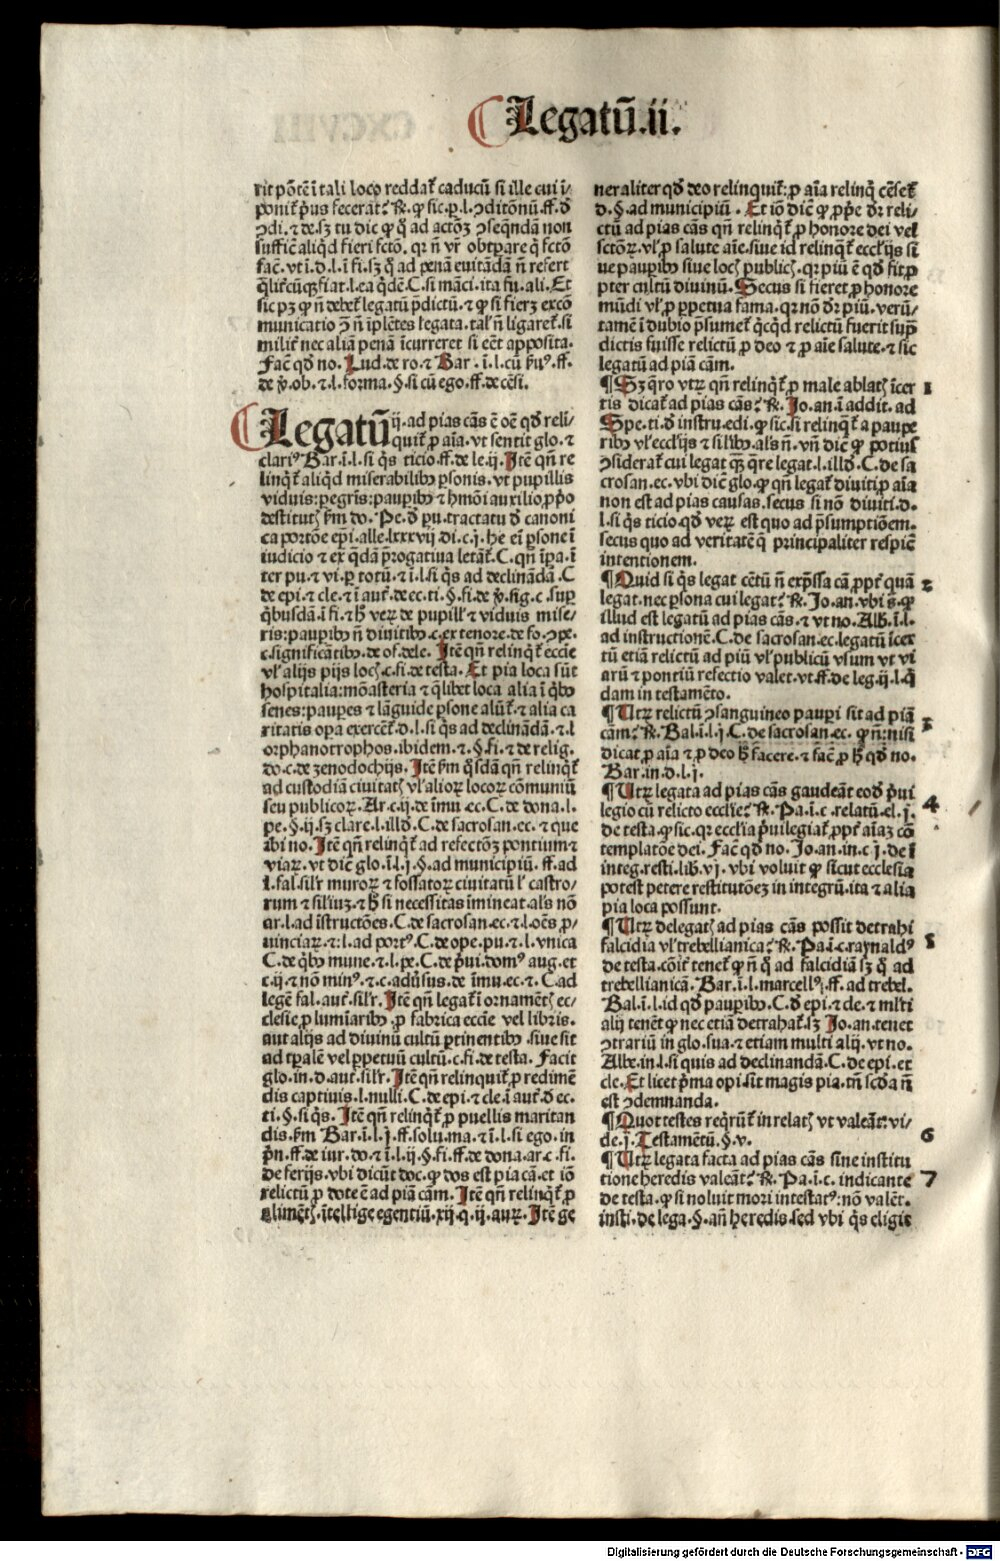 Legatū.ii.
rit põtē ī tali loco reddat̄ caducū si ille cui ī/
ponit̄ p̄us fecerāt? R̄. ꝙ sic.ꝑ.l.ꝯditōnū.ff.đ
ꝯdi.⁊ de.sꝫ tu dic ꝙ q̄ ad actōꝫ ꝯseq̄ndā non
suffic̄ aliq̄d fieri fctō. qꝛ ñ vr̄ obtꝑare q̄ fctō
fac̄.vt ī.d.l.ī fi.sꝫ q̄ ad penā euitādā ñ refert
q̄lit̄cūqꝫ fiat.l.ea q̄dē.C.si māci.ita fu.ali.Et
sic pꝫ ꝙ ñ debet̄ legatū p̄dictū.⁊ ꝙ si fierꝫ excō
municatio ꝯ̄ ñ īplētes legata.tal̓ ñ ligaret̄.si
milit̓ nec aliā penā īcurreret si eēt apposita.
Fac̄ qđ no. Lud.de ro.⁊ Bar.ī.l.cū p̄ꝰ.ff.
de v̓.ob.⁊.l.forma.§.si cū ego.ff.de cēsi.
Legatū ij.ad pias cās ē oē qđ reli/
quit̄ ꝓ aīa.vt sentit glo.⁊
clariꝰ Bar.ī.l.si q̄s ticio.ff.de le.ij.Itē qñ re
linq̄t̄ aliqđ miserabilibꝰ ꝑsonis.vt pupillis
viduis:pegr̄is:pauꝑibꝰ ⁊ hmōi auxilio ꝓp̄o
destitutꝭ ẜm do. Pe.đ pu.tractatu đ canoni
ca portōe ep̄i.alle.lxxxvij di.c.j.he eī ꝑsone ī
iudicio ⁊ ex q̄dā p̄rogatiua letāt̄.C.qñ īꝑa.ī
ter pu.⁊ vi.ꝑ totū.⁊ ī.l.si q̄s ad declinādā.C
de epi.⁊ cle.⁊ ī aut̄.de ec.ti.§.fi.de v̓.sig.c.suꝑ
q̄busdā.ī fi.⁊ h̄ veꝝ de pupill̓ ⁊ viduis mise/
ris:pauꝑibꝰ ñ diuitibꝰ.c.ex tenore.de fo.ꝯpe.
c.significātibꝰ.de of.dele. Itē qñ relinq̄t̄ eccīe
vl̓ alijs pijs locꝭ.c.fi.de testa. Et pia loca sūt
hospitalia:mōasteria ⁊ q̄libet loca alia ī q̄bꝰ
senes:pauꝑes ⁊ lāguide ꝑsone alūt̄.⁊ alia ca
ritatis oꝑa exercēt̄.d.l.si q̄s ad declinādā.⁊.l
orphanotrophos.ibidem.⁊.§.fi.⁊ de relig.
do.c.de zenodochijs. Itē ẜm q̄sdā qñ relinq̄t̄
ad custodiā ciuitatꝭ vl̓ alioꝝ locoꝝ cōmuniū
seu publicoꝝ.Ar.c.ij.de īmu.ec.C.de dona.l.
pe.§.ij.sꝫ clare.l.illđ.C.de sacrosan.ec.⁊ que
ibi no. Itē qñ relinq̄t̄ ad refectōꝫ pontium ⁊
viaꝝ.vt dic̄ glo.ī.l.j.§.ad municipiū.ff.ad
l.fal.sil̓r muroꝝ ⁊ fossatoꝝ ciuitatū l̓ castro/
rum ⁊ sil̓iuꝫ.⁊ h̄ si necessitas īmineat al̓s nō
ar.l.ad īstructōes.C.de sacrosan.ec.⁊.l.oēs ꝓ/
uinciaꝝ.⁊:l.ad portꝰ.C.de ope.pu.⁊.l.vnica
C.de q̄bꝰ mune.⁊.l.pe.C.de p̄ui.domꝰ aug.et
c.ij.⁊ nō minꝰ.⁊.c.adūsus.de īmu.ec.⁊.C.ad
legē fal.aut̄.sil̓r. Itē qñ legat̄ ī ornamētꝭ ec/
clesie ꝓ lumīaribꝰ.ꝓ fabrica eccīe vel libris.
aut alijs ad diuinū cultū ꝑtinentibꝰ.siue sit
ad tꝑalē vel ꝑpetuū cultū.c.fi.de testa. Facit
glo.in.d.aut̄.sil̓r. Itē qñ relinquit̄ ꝓ redimē
dis captiuis.l.nulli.C.de epi.⁊ cle.ī aut̄.đ ec.
ti.§.si q̄s. Itē qñ relinq̄t̄ ꝓ puellis maritan
dis.ẜm Bar.ī.l.j.ff.solu.ma.⁊ ī.l.si ego.in
p̄n.ff.de iur.do.⁊ ī.l.ij.§.fi.ff.de dona.ar.c.fi.
de ferijs.vbi dicūt doc.ꝙ dos est pia cā.et iō
relictū ꝓ dote ē ad piā cām. Itē qñ relinq̄t̄ ꝓ
alimētꝭ.ītellige egentiū.xij.q.ij.auꝝ. Itē ge
neraliter qđ deo relinquit̄:ꝓ aīa relinq̄ cēset̄
d.§.ad municipiū. Et iō dic̄ ꝙ ꝓp̄e dr̄ reli/
ctū ad pias cās qñ relinq̄t̄ ꝓ honore dei vel
sctōꝝ.vl̓ ꝓ salute aīe.siue id relinq̄t̄ eccl̓ijs si
ue pauꝑibꝰ siue locꝭ publicꝭ.qꝛ piū ē qđ fit ꝓ
pter cultū diuinū. Secus si fieret ꝓ honore
mūdi vl̓ ꝓ ꝑpetua fama.qꝛ nō dr̄ piū.verū/
tamē ī dubio p̄sumet̄ q̄cq̄d relictū fuerit suꝑ
dictis fuisse relictū ꝓ deo ⁊ ꝓ aīe salute.⁊ sic
legatū ad piā cām.
¶Sꝫ q̄ro vtꝝ qñ relinq̄t̄ ꝓ male ablatꝭ īcer 1
tis dicat̄ ad pias cās? R̄. Jo.an.ī addit.ad
Spe.ti.đ instru.edi.ꝙ sic.si relinq̄t̄ a paupe
ribꝰ vl̓ eccl̓ijs ⁊ sil̓ibꝰ.al̓s ñ.vñ dic̄ ꝙ potius
ꝯsiderat̄ cui legat̄ qꝫ q̄re legat̄.l.illđ.C.de sa
crosan.ec.vbi dic̄ glo.ꝙ qñ legat̄ diuiti ꝓ aīa
non est ad pias causas.secus si nō diuiti.d.
l.si q̄s ticio.qđ veꝝ est quo ad p̄sumptiōem.
secus quo ad veritatē q̄ principaliter respic̄
intentionem.
¶Quid si q̄s legat cētū ñ exp̄ssa cā ꝓpt̄ quā 2
legat.nec ꝑsona cui legat? R̄. Jo.an.vbi s̄.ꝙ
illud est legatū ad pias cās.⁊ vt no. Alb̄.ī.l.
ad instructionē.C.de sacrosan.ec.legatū īcer
tū etiā relictū ad piū vl̓ publicū vsum vt vi
arū ⁊ pontiū refectio valet.vt.ff.de leg.ij.l.q̄
dam in testamēto.
¶Utꝝ relictū ꝯsanguineo pauꝑi sit ad piā 3
cām? R̄. Bal.ī.l.j.C.de sacrosan.ec.ꝙ ñ:nisi
dicat ꝓ aīa ⁊ ꝓ deo h̄ facere.⁊ fac̄ ꝓ h̄ qđ no.
Bar.in.d.l.j.
¶Utꝝ legata ad pias cās gaudeāt eod̄ p̄ui 4
legio cū relicto eccl̓ie? R̄. Pa.ī.c.relatū.el.j.
de testa.ꝙ sic.qꝛ eccl̓ia p̄uilegiat̄ ꝓpt̄ aīaꝫ cō
templatōe dei. Fac̄ qđ no. Jo.an.in.c.j.de ī
integ.resti.lib.vj.vbi voluit ꝙ sicut ecclesia
potest petere restitutōeꝫ in integrū.ita ⁊ alia
pia loca possunt.
¶Utꝝ de legatꝭ ad pias cās possit detrahi 5
falcidia vl̓ trebellianica? R̄. Pa.ī.c.raynaldꝰ
de testa.cōit̓ tenet̄ ꝙ ñ q̄ ad falcidiā sꝫ q̄ ad
trebellianicā. Bar.ī.l.marcellꝰ.ff.ad trebel.
Bal.ī.l.id qđ pauꝑibꝰ.C.đ epi.⁊ cle.⁊ ml̓ti
alij tenēt ꝙ nec etiā detrahat̄.sꝫ Jo.an.tenet
ꝯtrariū in glo.sua.⁊ etiam multi alij.vt no.
Albe.in.l.si quis ad declinandā.C.de epi.et
cle. Et licet p̄ma opi.sit magis pia.tñ scđa ñ
est ꝯdemnanda.
¶Quot testes reqrūt̄ in relatꝭ vt valeāt:vi/ 6
de.j. Testamētū.§.v.
¶Utꝝ legata facta ad pias cās sine institu
tione heredis valeāt? R̄. Pa.ī.c.indicante 7
de testa.ꝙ si noluit mori intestatꝰ:nō valēt.
insti.de lega.§.añ heredis.sed vbi q̄s eligit
Digitalisierung gefördert durch die Deutsche Forschungsgemeinschaft - DFG